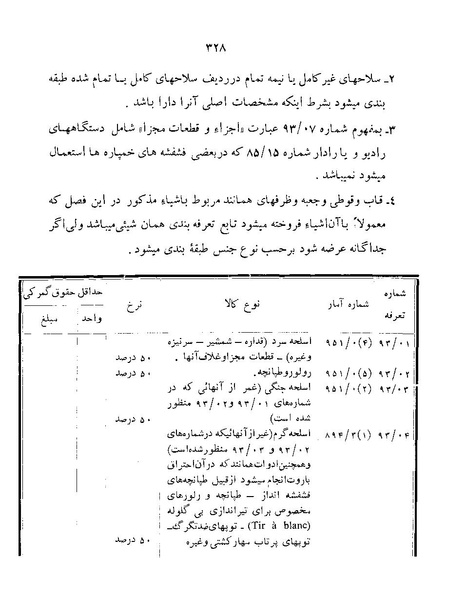 ۳۲۸
۲ـ سلاحهای غیرکامل یا نیمه تمام درردیف سلاحهای کامل یا تمام شده طبقه
بندی میشود بشرط اینکه مشخصات اصلی آنرا دارا باشد .
۳ـ بمفهوم شماره ۹۳/۰۷ عبارت «اجزاء و قطعات مجزا» شامل دستگاههای
رادیو و یا رادار شماره ۸۵/۱۵ که دربعضی فشفشه های خمپاره ها استعمال
میشود نمیباشد .
٤ـ قاب وقوطی وجعبه وظرفهای همانند مربوط باشیاء مذکور در این فصل که
معمولاً با آن اشیاء فروخته میشود تابع تعرفه بندی همان شیئی میباشد ولی اگر
جداگانه عرضه شود برحسب نوع جنس طبقه بندی میشود .
شماره تعرفه
شماره آمار
نوع کالا
نرخ
حداقل حقوق گمرکی
واحد
مبلغ
۹۳/۰۱ ۹۵۱/۰(۴) اسلحه سرد (قداره ـ شمشیر ـ سرنیزه
وغیره) ـ قطعات مجزا وغلاف آنها . ۵۰ درصد
۹۳/۰۲ ۹۵۱/۰(۵) رولور وطپانچه. ۵۰ درصد
۹۳/۰۳ ۹۵۱/۰(۲) اسلحه جنگی (غیر از آنهائی که در
شماره‌های ۹۳/۰۱ و ۹۳/۰۲ منظور
شده است) ۵۰ درصد
۹۳/۰۴ ۸۹۴/۳(۱) اسلحه گرم (غیر از آنهائیکه در شماره‌های
۹۳/۰۲ و ۹۳/۰۳ منظور شده است)
وهمچنین ادوات همانند که در آن احتراق
باروت انجام میشود از قبیل طپانچه‌های
فشفشه انداز ـ طپانچه و رلورهای
مخصوص برای تیراندازی بی گلوله
(Tir à blanc) ـ توپهای ضد تگرگ ـ
توپهای پرتاب مهار کشتی وغیره ۵۰ درصد